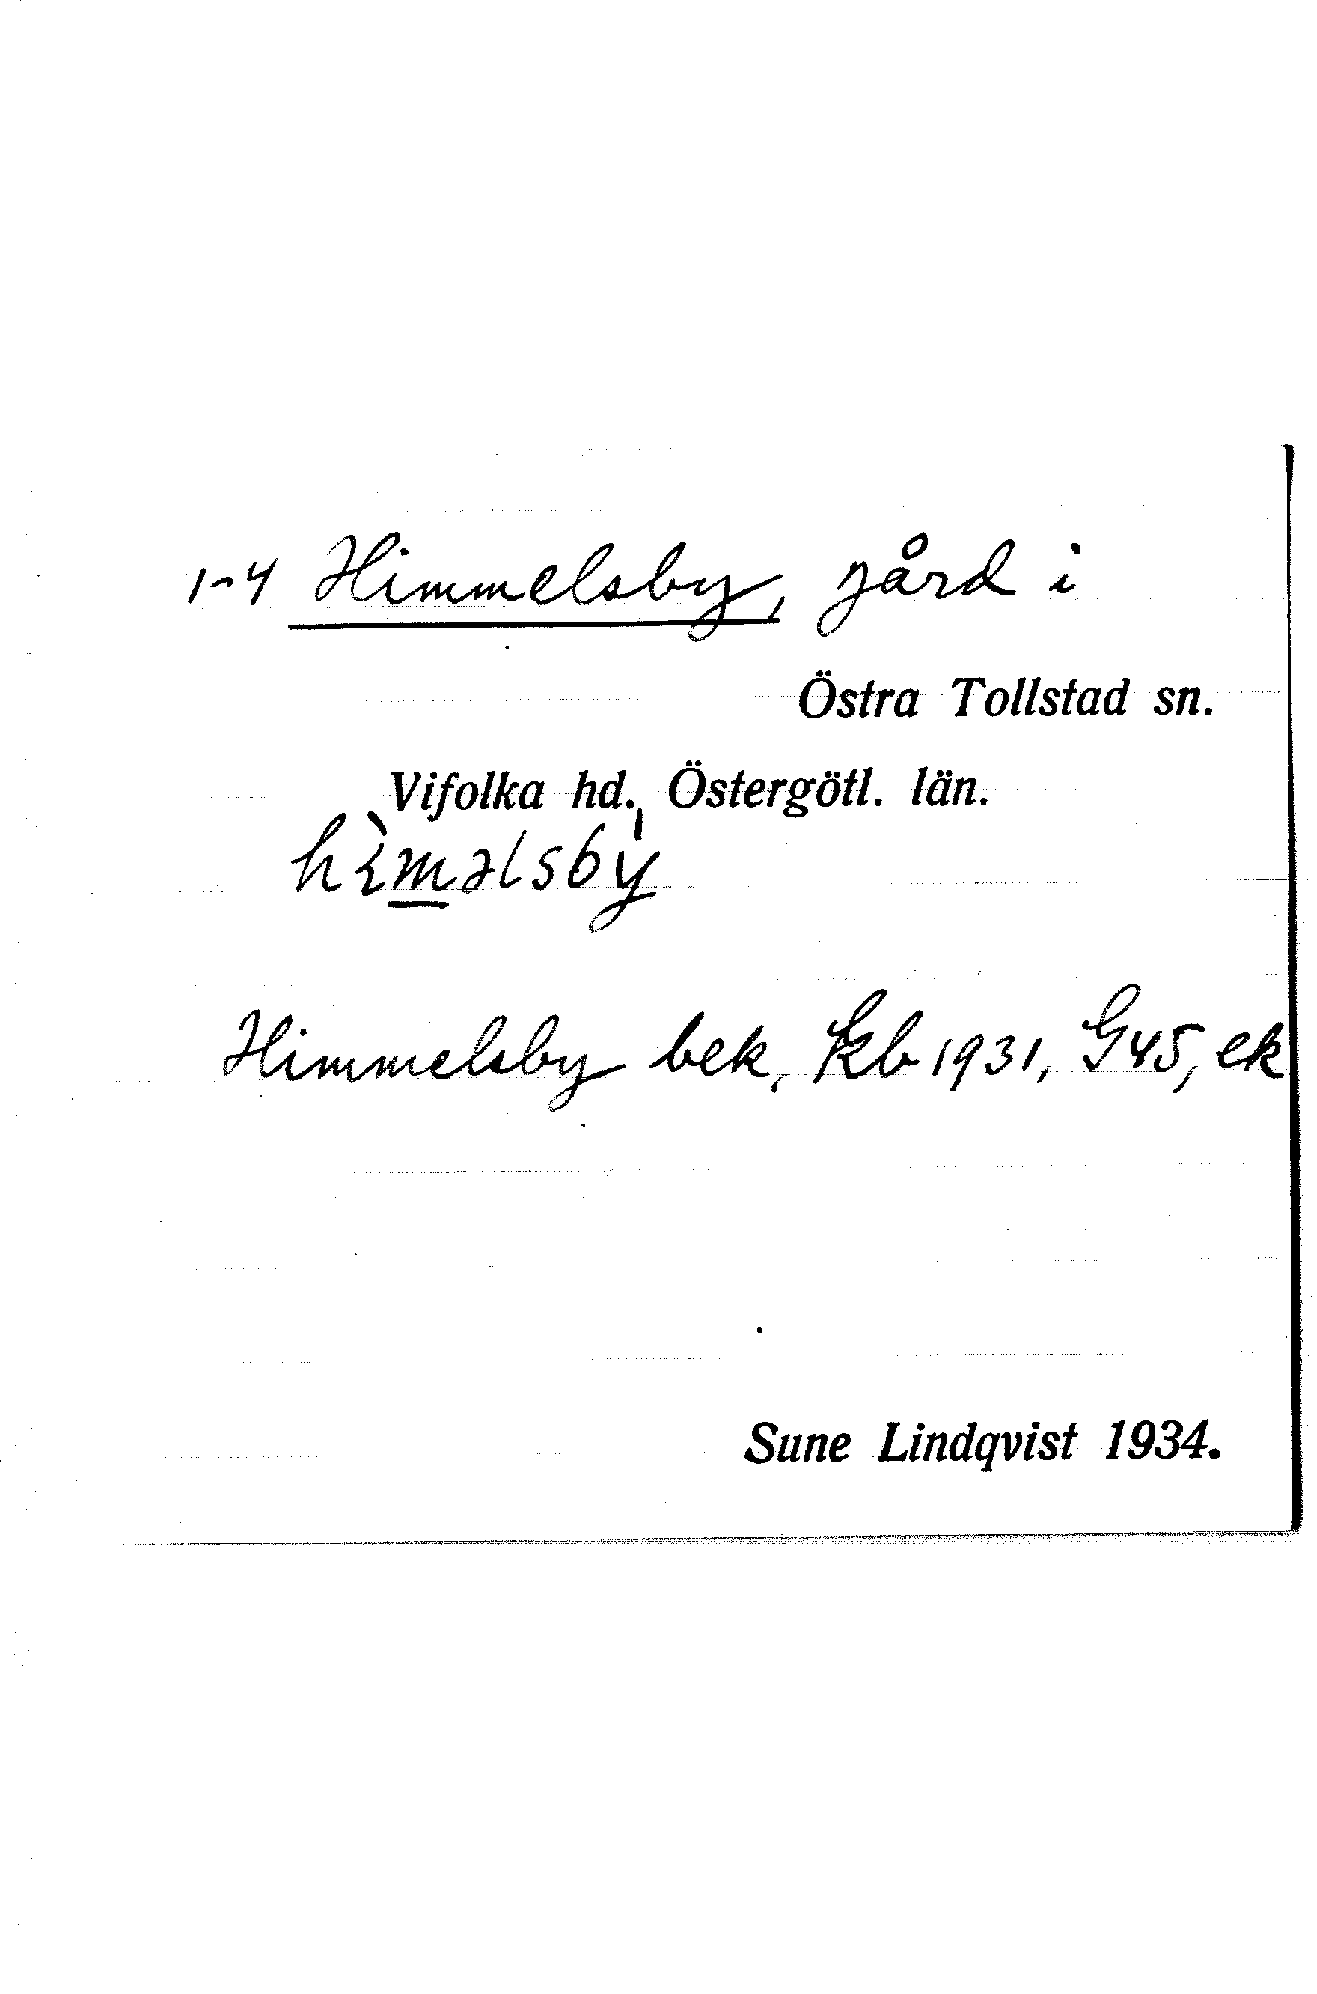 1-4 Himmelsby, gård i
Östra Tollstad sn.
Vifolka hd., Östergötl. län.
hìməlsbý
Himmelsby bek, kb 1931, G45, ek
Sune Lindqvist 1934.